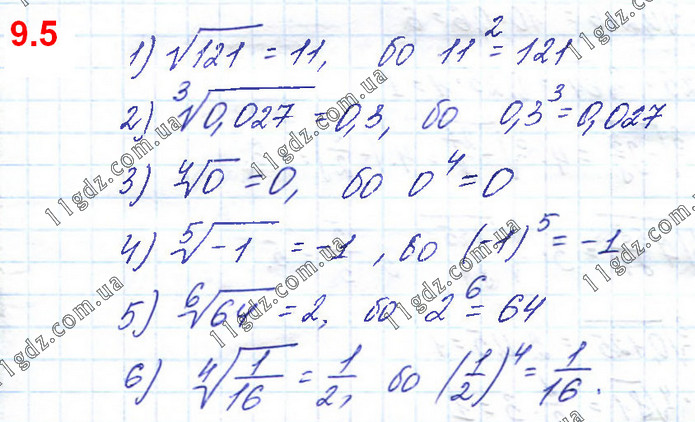 9.5
1) √121 = 11, бо 11² = 121
2) ³√0,027 = 0,3, бо 0,3³ = 0,027
3) ⁴√0 = 0, бо 0⁴ = 0
4) ⁵√-1 = -1, бо (-1)⁵ = -1
5) ⁶√64 = 2, бо 2⁶ = 64
6) ⁴√(1/16) = 1/2, бо (1/2)⁴ = 1/16.
11gdz.com.ua
11gdz.com.ua
11gdz.com.ua
11gdz.com.ua
11gdz.com.ua
11gdz.com.ua